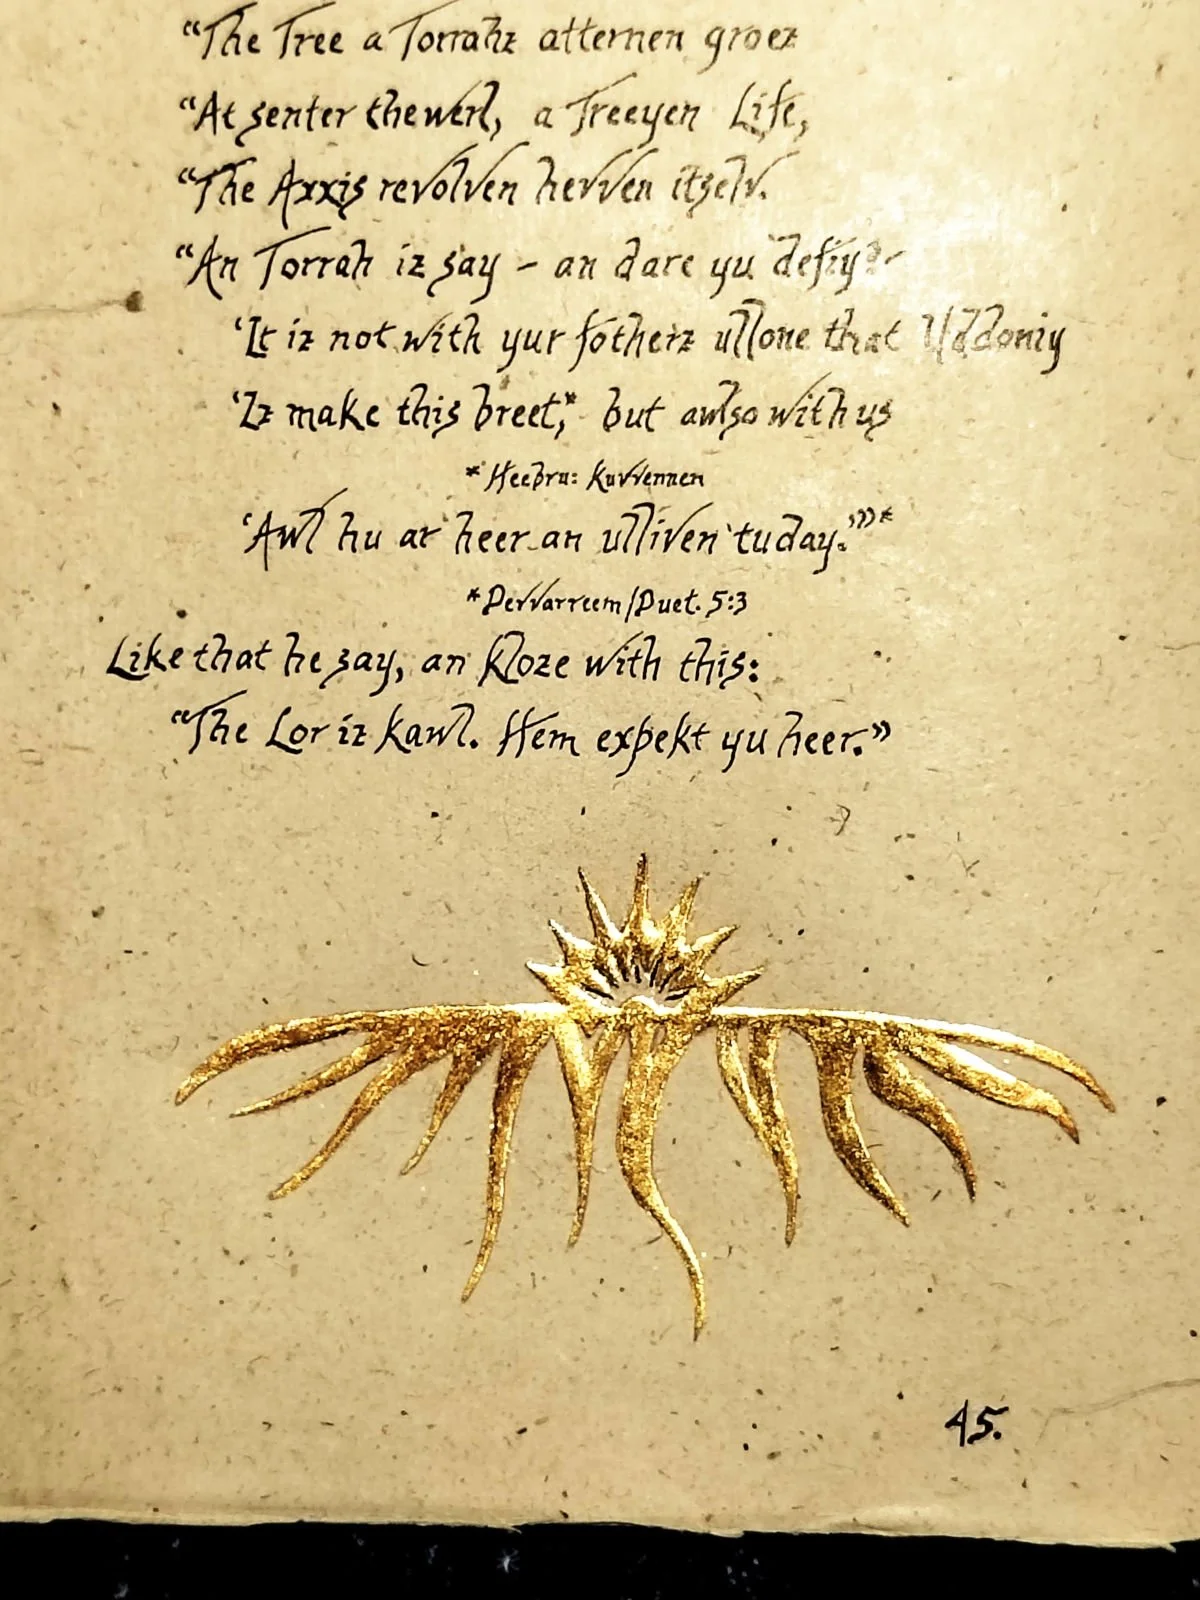 “The Tree a Torrahz atternen groez
“At senter thewerl, a Treeyen Life,
“The Axxis revolven hevven itselv.
“An Torrah iz say – an dare yu defiy?–
‘It iz not with yur fotherz ullone that Uddoniy
‘Iz make this breet,* but awlso with us
*Heebru: Kuvvennen
‘Awl hu ar heer an ulliven tuday.’”*
*Devvarreem/Duet. 5:3
Like that he say, an kloze with this:
“The Lor iz kawl. Hem expekt yu heer.”
45.